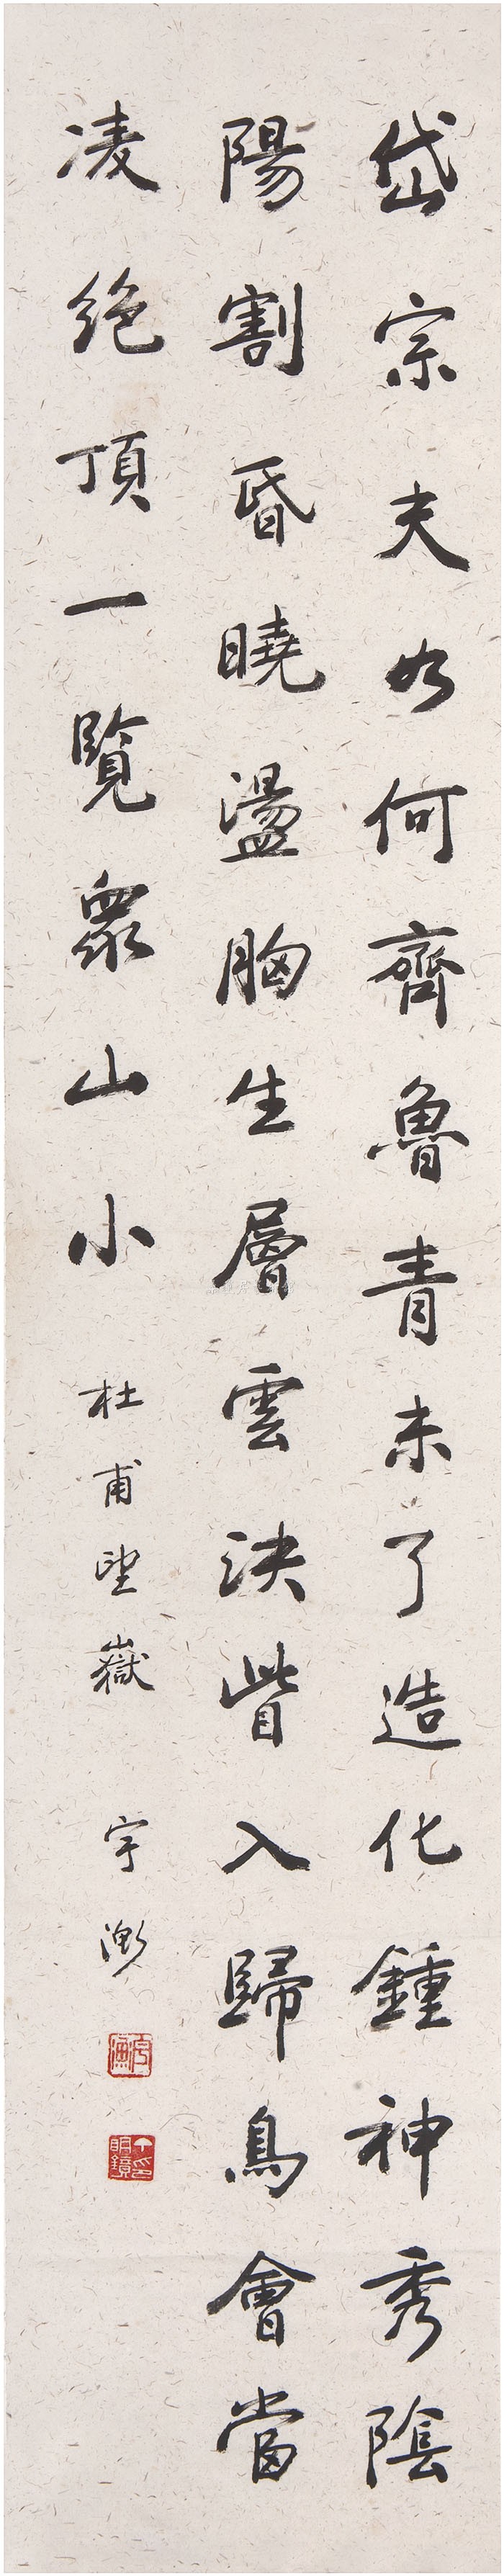 岱宗夫如何齊魯青未了造化鍾神秀陰
陽割昏曉盪胸生層雲決眥入歸鳥會當
凌絕頂一覽眾山小
杜甫望嶽
宇漁